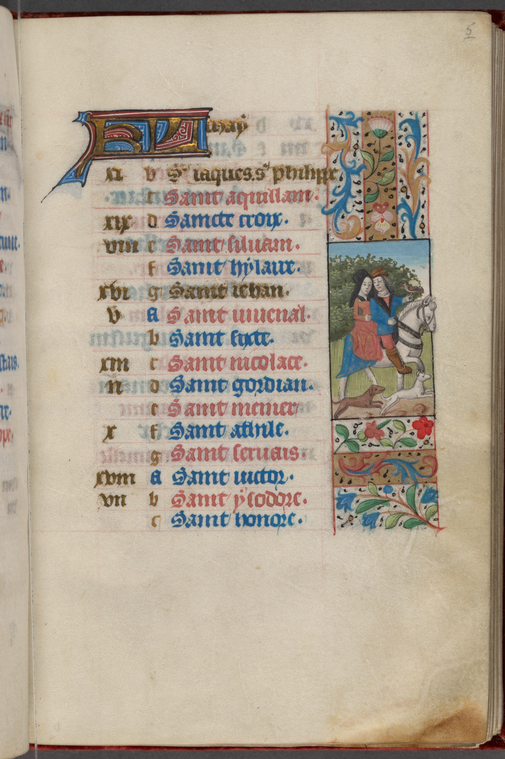 5
KL may
xi b S iaques. s phlipe
c Saint aquillain.
xix d Saincte croix.
viii e Saint siluain.
f Saint hylaire.
xvi g Saint iehan.
v A Saint iuuenal.
b Saint sixte.
xiii c Saint nicolace.
ii d Saint gordian.
e Saint
x f Saint
g Saint seruais:
xviii A Saint uictor.
vii b Saint ysodore.
c Saint honore.